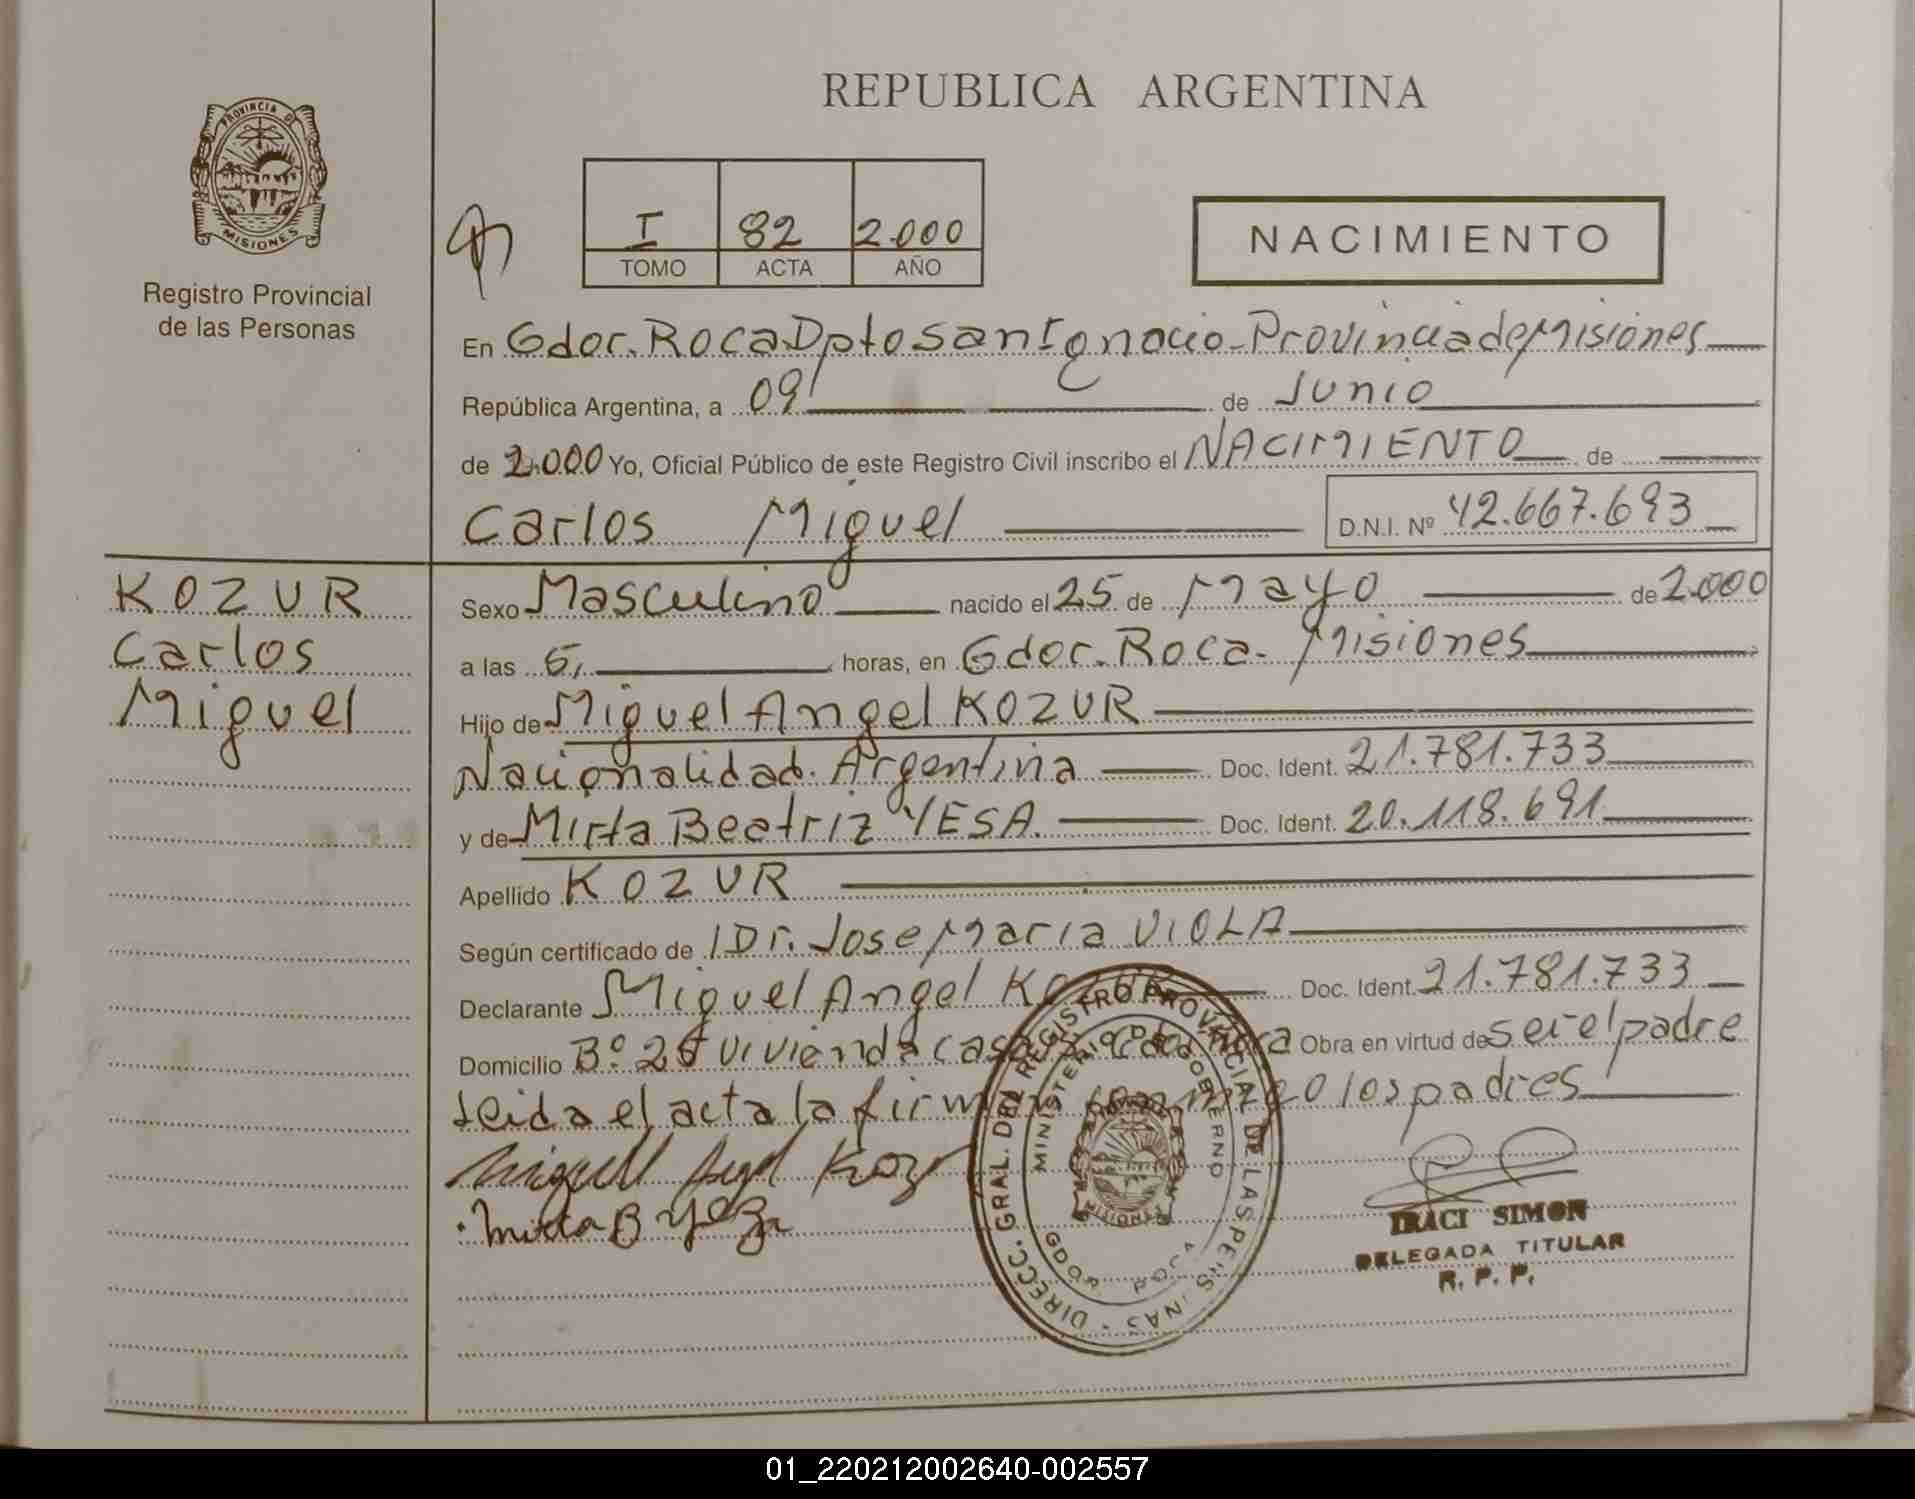 REPUBLICA ARGENTINA
PROVINCIA DE
MISIONES
Registro Provincial
de las Personas
I 82 2.000
TOMO ACTA AÑO
NACIMIENTO
En Gdor. Roca Dpto San Ignacio - Provincia de Misiones
República Argentina, a 09 de Junio
de 2.000 Yo, Oficial Público de este Registro Civil inscribo el NACIMIENTO de
Carlos Miguel D.N.I. Nº 42.667.693
KOZUR
Carlos
Miguel
Sexo Masculino nacido el 25 de Mayo de 2.000
a las 5, horas, en Gdor. Roca - Misiones
Hijo de Miguel Angel KOZUR
Nacionalidad Argentina Doc. Ident. 21.781.733
y de Mirta Beatriz YESA Doc. Ident. 20.118.691
Apellido KOZUR
Según certificado de Dr. Jose Maria VIOLA
Declarante Miguel Angel Doc. Ident. 21.781.733
Domicilio Bº 25 vivienda casa Obra en virtud de ser el padre
Leida el acta la firman los padres
Miguel Angel Koz
Mirta B
DIRECC. GRAL. DEL REGISTRO PROVINCIAL DE LAS PERSONAS
MINISTERIO DE GOBIERNO
MISIONES
GDOR ROCA
IRACI SIMON
DELEGADA TITULAR
R. P. P.
01_220212002640-002557